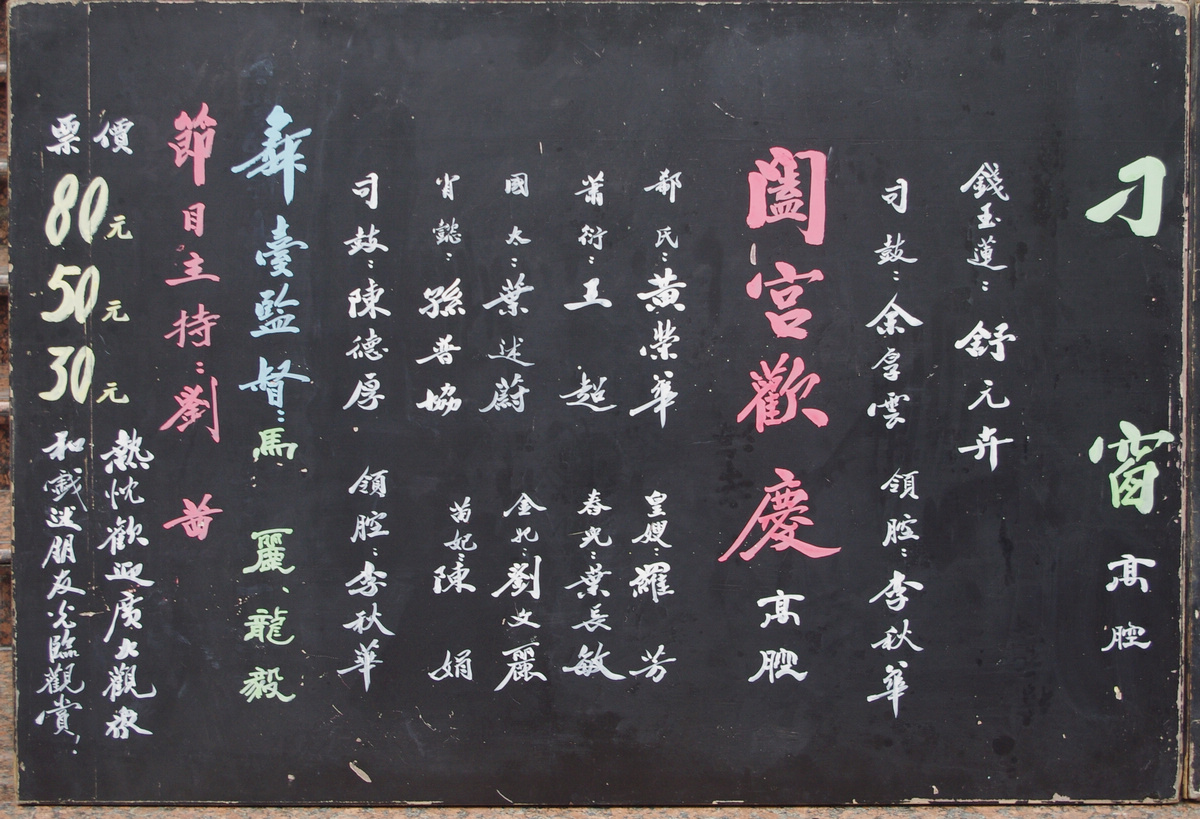 刁窗 高腔
錢玉蓮：舒元卉
司鼓：余厚雲 領腔：李秋華
闔宮歡慶 高腔
郗氏：黃榮華 皇嫂：羅芳
蕭衍：王超 春兒：葉長敏
國太：葉述蔚 金妃：劉文麗
肖懿：孫普協 苗妃：陳娟
司鼓：陳德厚 領腔：李秋華
舞臺監督：馬麗、龍毅
節目主持：劉茜
票價
80元
50元
30元
熱忱歡迎廣大觀衆
和戲迷朋友光臨觀賞！